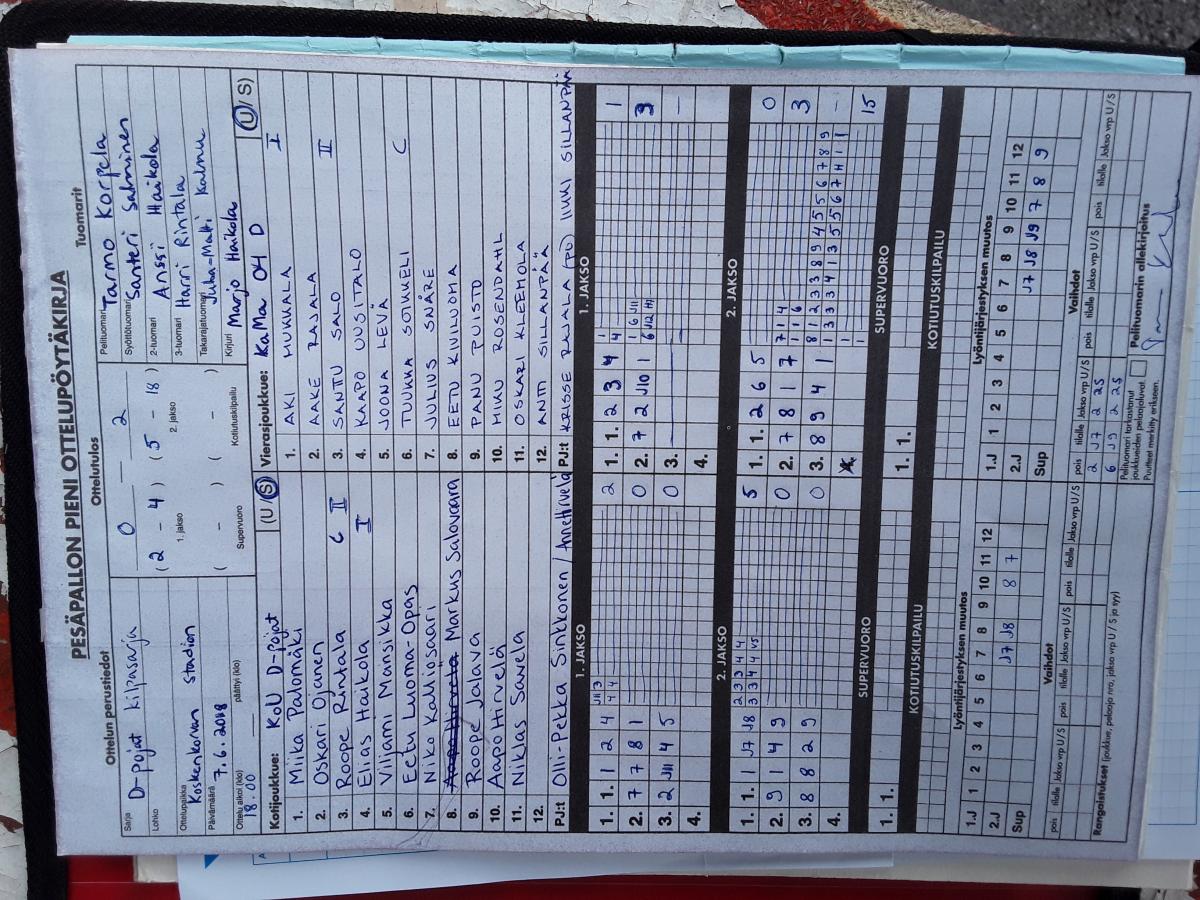 PESÄPALLON PIENI OTTELUPÖYTÄKIRJA
Ottelun perustiedot
Sarja D-pojat kilpasarja
Lohko
Ottelupaikka Koskenkorvan stadion
Päivämäärä 7.6.2018
Ottelu alkoi (klo) 18.00 päättyi (klo)
Ottelutulos
0 2
(2 - 4) (5 - 18)
1. jakso 2. jakso
( - ) ( - )
Supervuoro Kotiutuskilpailu
Tuomarit
Pelituomari Tarmo Korpela
Syöttötuomari Santeri Salminen
2-tuomari Anssi Haikola
3-tuomari Harri Rintala
Takarajatuomari Juha-Matti Kalmu
Kirjuri Marjo Haikola
Kotijoukkue: KoU D-pojat (U/S)
1. Miika Palomäki
2. Oskari Ojanen
3. Roope Rintala C II
4. Elias Haikola I
5. Viljami Mansikka
6. Eetu Luoma-Opas
7. Niko Kalliosaari
8. Aapo Hirvelä Markus Salovaara
9. Roope Jalava
10. Aapo Hirvelä
11. Niklas Savela
12.
PJ:t Olli-Pekka Sinkkonen / Anne Hirvelä
Vierasjoukkue: KaMa 04 D (U/S)
1. AKI MUKKALA I
2. AAKE RAJALA
3. SANTTU SALO II
4. KAAPO UUSITALO
5. JOONA LEVÄ
6. TUUKKA SOIKKELI C
7. JULIUS SNÅRE
8. EETU KIVILUOMA
9. PANU PUISTO
10. MIKU ROSENDAHL
11. OSKARI KLEEMOLA
12. ANTTI SILLANPÄÄ
PJ:t KRISSE RAJALA (PJ) ILKKI SILLANPÄÄ
1. JAKSO 1. JAKSO
1. 1. 1 2 4 2
2. 7 7 8 1 0
3. 2 J11 4 5 0
4.
1. 1. 2 3 4 1
2. 7 2 J10 1 3
3. -
4.
2. JAKSO 2. JAKSO
1. 1. 1 J7 J8 5
2. 9 1 4 9 0
3. 8 8 2 9 0
1. 1. 2 6 5 0
2. 7 8 1 7 3
3. 8 9 4 1 -
8 1 2 3 3 8 9 4 5 5 6 7 8 9
15
SUPERVUORO SUPERVUORO
1. 1. 1. 1.
KOTIUTUSKILPAILU KOTIUTUSKILPAILU
Lyöntijärjestyksen muutos
1.J 1 2 3 4 5 6 7 8 9 10 11 12
2.J J7 J8 8 7
Sup
Lyöntijärjestyksen muutos
1.J 1 2 3 4 5 6 7 8 9 10 11 12
2.J J7 J8 J9 7 8 9
Sup
Vaihdot
pois tilalle Jakso vrp U/S pois tilalle Jakso vrp U/S pois tilalle Jakso vrp U/S
Vaihdot
pois tilalle Jakso vrp U/S pois tilalle Jakso vrp U/S pois tilalle Jakso vrp U/S
2 J7 2 2S
6 J9 2 2S
Rangaistukset (joukkue, pelaaja nro, jakso vrp U / S ja syy)
Pelituomari tarkastanut
joukkueiden pelaajaluvat.
Puutteet merkitty erikseen.
Pelituomarin allekirjoitus